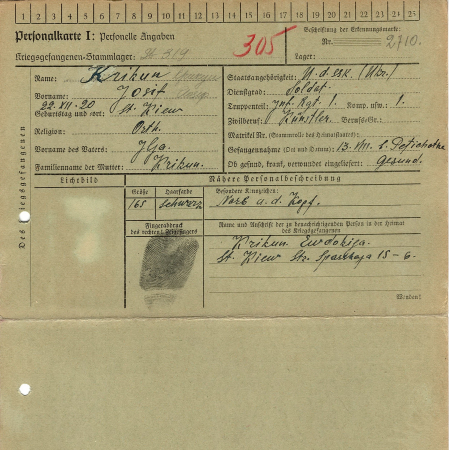 1 2 3 4 5 6 7 8 9 10 11 12 13 14 15 16 17 18 19 20 21 22 23 24 25
Personalkarte I: Personelle Angaben
Kriegsgefangenen-Stammlager: St 319
305
Beschriftung der Erkennungsmarke:
Nr. 2710.
Lager:
Des Kriegsgefangenen
Name: Krikun
Vorname: Josif
Geburtstag und -ort: 22.VII.20 St. Kiew
Religion: Orth.
Vorname des Vaters: Ilja
Familienname der Mutter: Krikun.
Staatsangehörigkeit: U.d.SSR. (Ukr.)
Dienstgrad: Soldat.
Truppenteil: Inf. Rgt. 1. Komp. usw.: 1.
Zivilberuf: Künstler. Berufs-Gr.:
Matrikel Nr. (Stammrolle des Heimatstaates):
Gefangennahme (Ort und Datum): 13.VIII.
Ob gesund, krank, verwundet eingeliefert: Gesund.
Lichtbild
Nähere Personalbeschreibung
Größe
Haarfarbe
Besondere Kennzeichen:
165
schwarz
Narb a. d. Kopf.
Fingerabdruck
des rechten Zeigefingers
Name und Anschrift der zu benachrichtigenden Person in der Heimat
des Kriegsgefangenen
Krikun Ewdokija.
St. Kiew Str. 15-6.
Wenden!